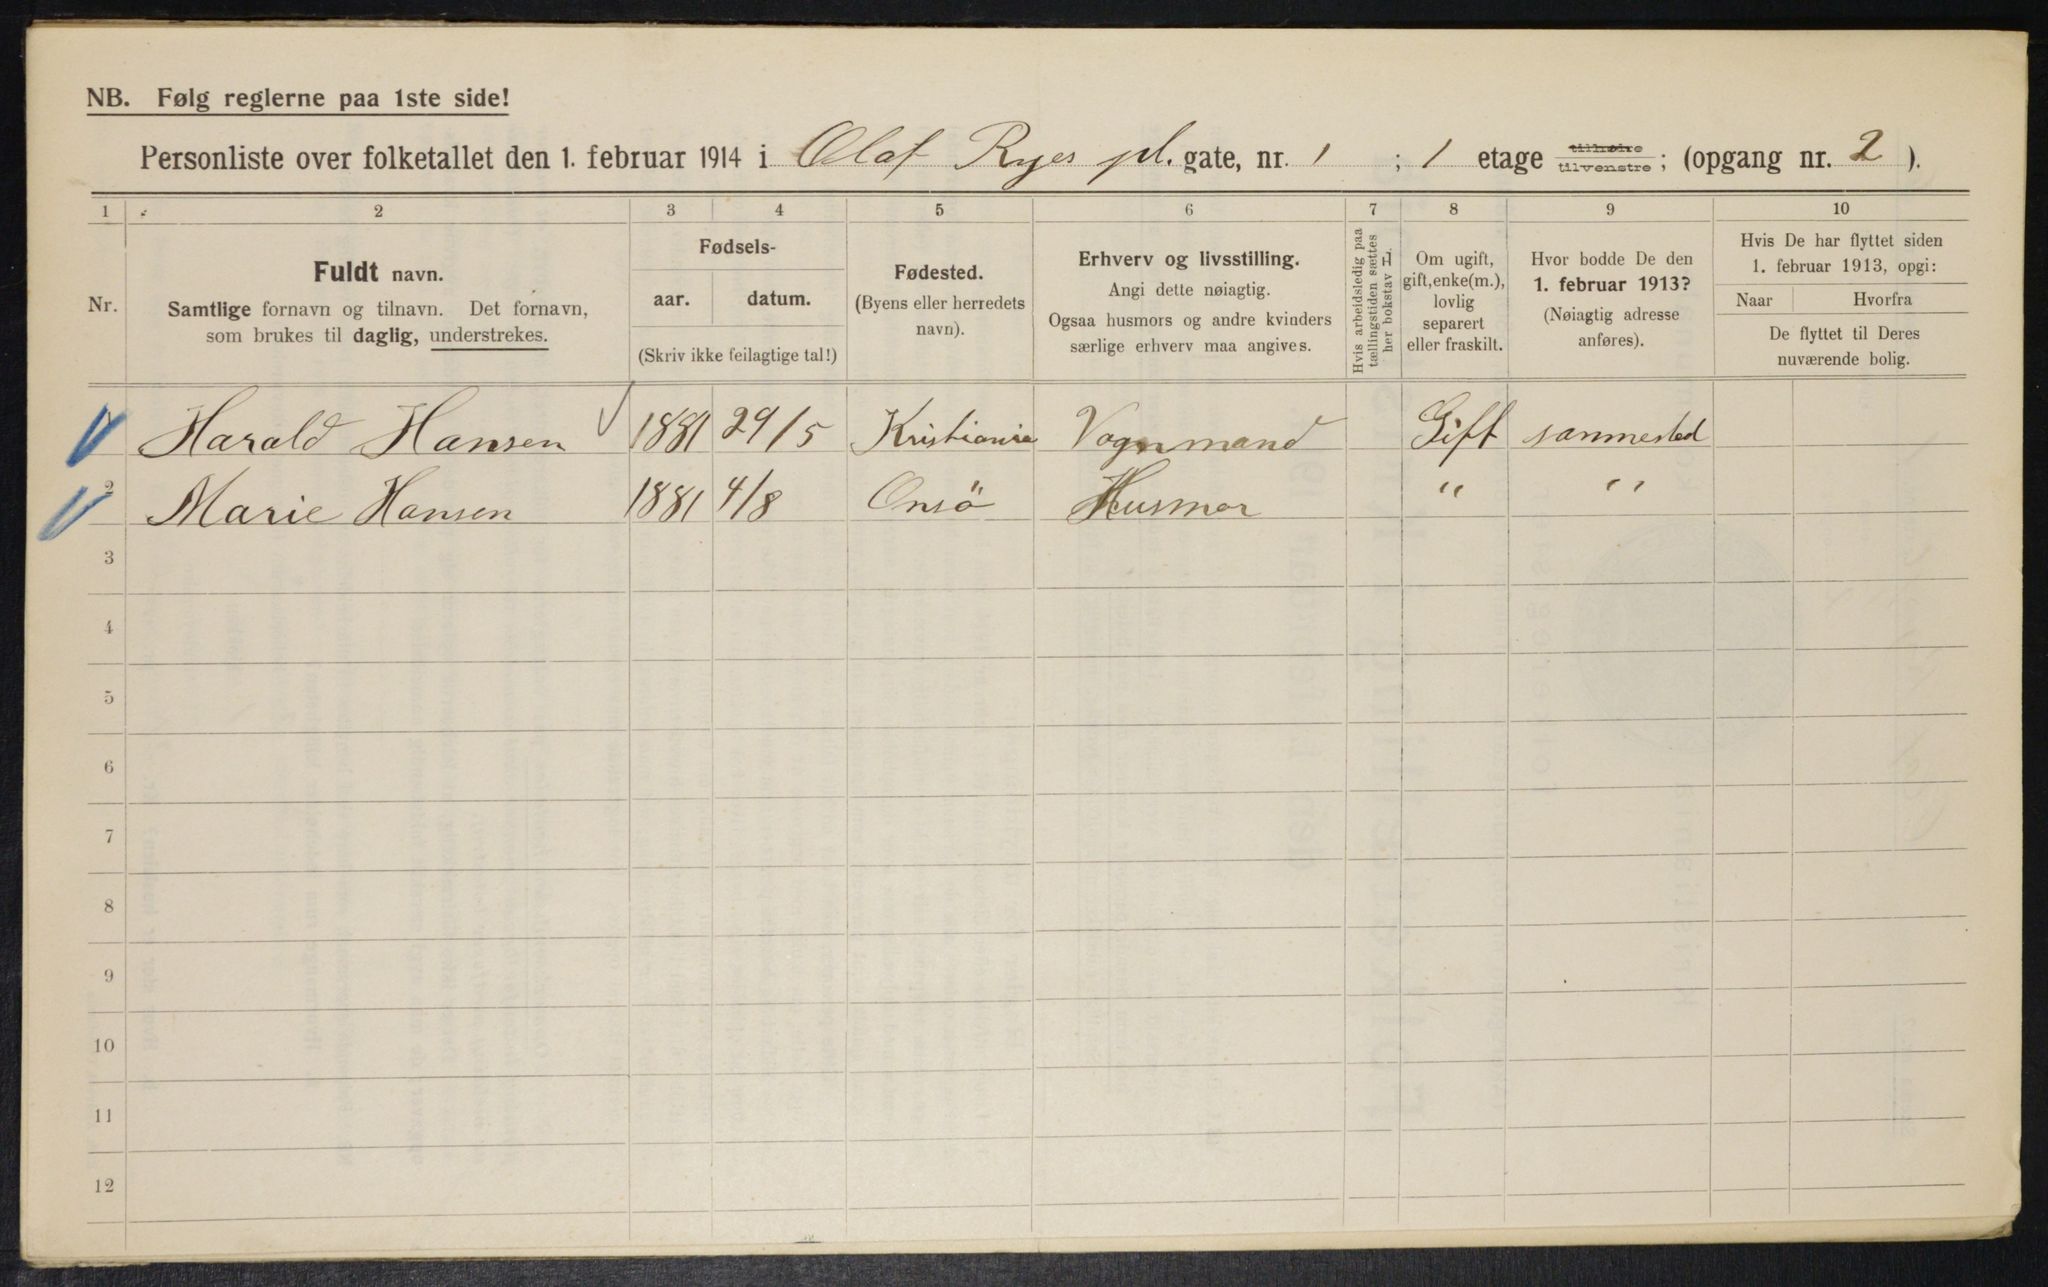 NB. Følg reglerne paa 1ste side!
Personliste over folketallet den 1. februar 1914 i Olaf Ryes pl. gate, nr. 1 ; 1 etage tilhøire tilvenstre; (opgang nr. 2 ).
1 2 3 4 5 6 7 8 9 10
Nr.
Fuldt navn.
Samtlige fornavn og tilnavn. Det fornavn,
som brukes til daglig, understrekes.
Fødsels-
aar. datum.
(Skriv ikke feilagtige tal!)
Fødested.
(Byens eller herredets
navn).
Erhverv og livsstilling.
Angi dette nøiagtig.
Ogsaa husmors og andre kvinders
særlige erhverv maa angives.
Hvis arbeidsledig paa
tællingstiden sættes
her bokstav L.
Om ugift,
gift, enke(m.),
lovlig
separert
eller fraskilt.
Hvor bodde De den
1. februar 1913?
(Nøiagtig adresse
anføres).
Hvis De har flyttet siden
1. februar 1913, opgi:
Naar Hvorfra
De flyttet til Deres
nuværende bolig.
Harald Hansen 1881 29/5 Kristiania Vognmand Gift sammested
2 Marie Hansen 1881 4/8 Onsö Husmor " "
3
4
5
6
7
8
9
10
11
12